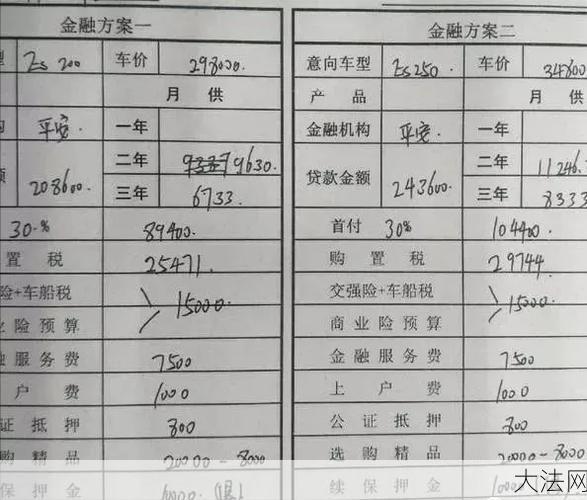 金融方案一
型 Es 200 车价 298000.
月供
构 平安. 一年
额 208600. 二年 9630.
三年 6733.
30.% 89400.
置税 25471.
险+车船税 15000.
业险预算
融服务费 7500
户费 1000
证抵押 800
购精品 20000-8000
保押金 10000.
金融方案二
意向车型 Es250. 车价 34800
产品 月供
金融机构 平安. 一年
贷款金额 243600. 二年 11246.
三年 8333
首付 30% 104400.
购置税 29744.
交强险+车船税 15000.
商业险预算
金融服务费 7500
上户费 1000
公证抵押 800
选购精品 20000-8000
续保押金
大法网